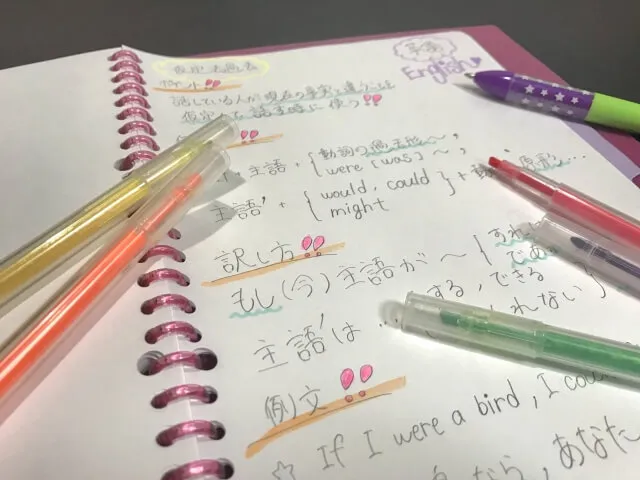 英語
English
仮定法過去
ポイント!!
話している人が現在の事実と違うことを
仮定して話す時に使う!!
!!
主語 + { 動詞の過去形〜,
were [was] 〜,
主語' + { would, could
might } + 動 原形...
訳し方!!
もし(今)主語が〜{ すれ
であ
主語'は ... する, できる
れない }
例文!!
☆ If I were a bird, I cou
なら, あなた